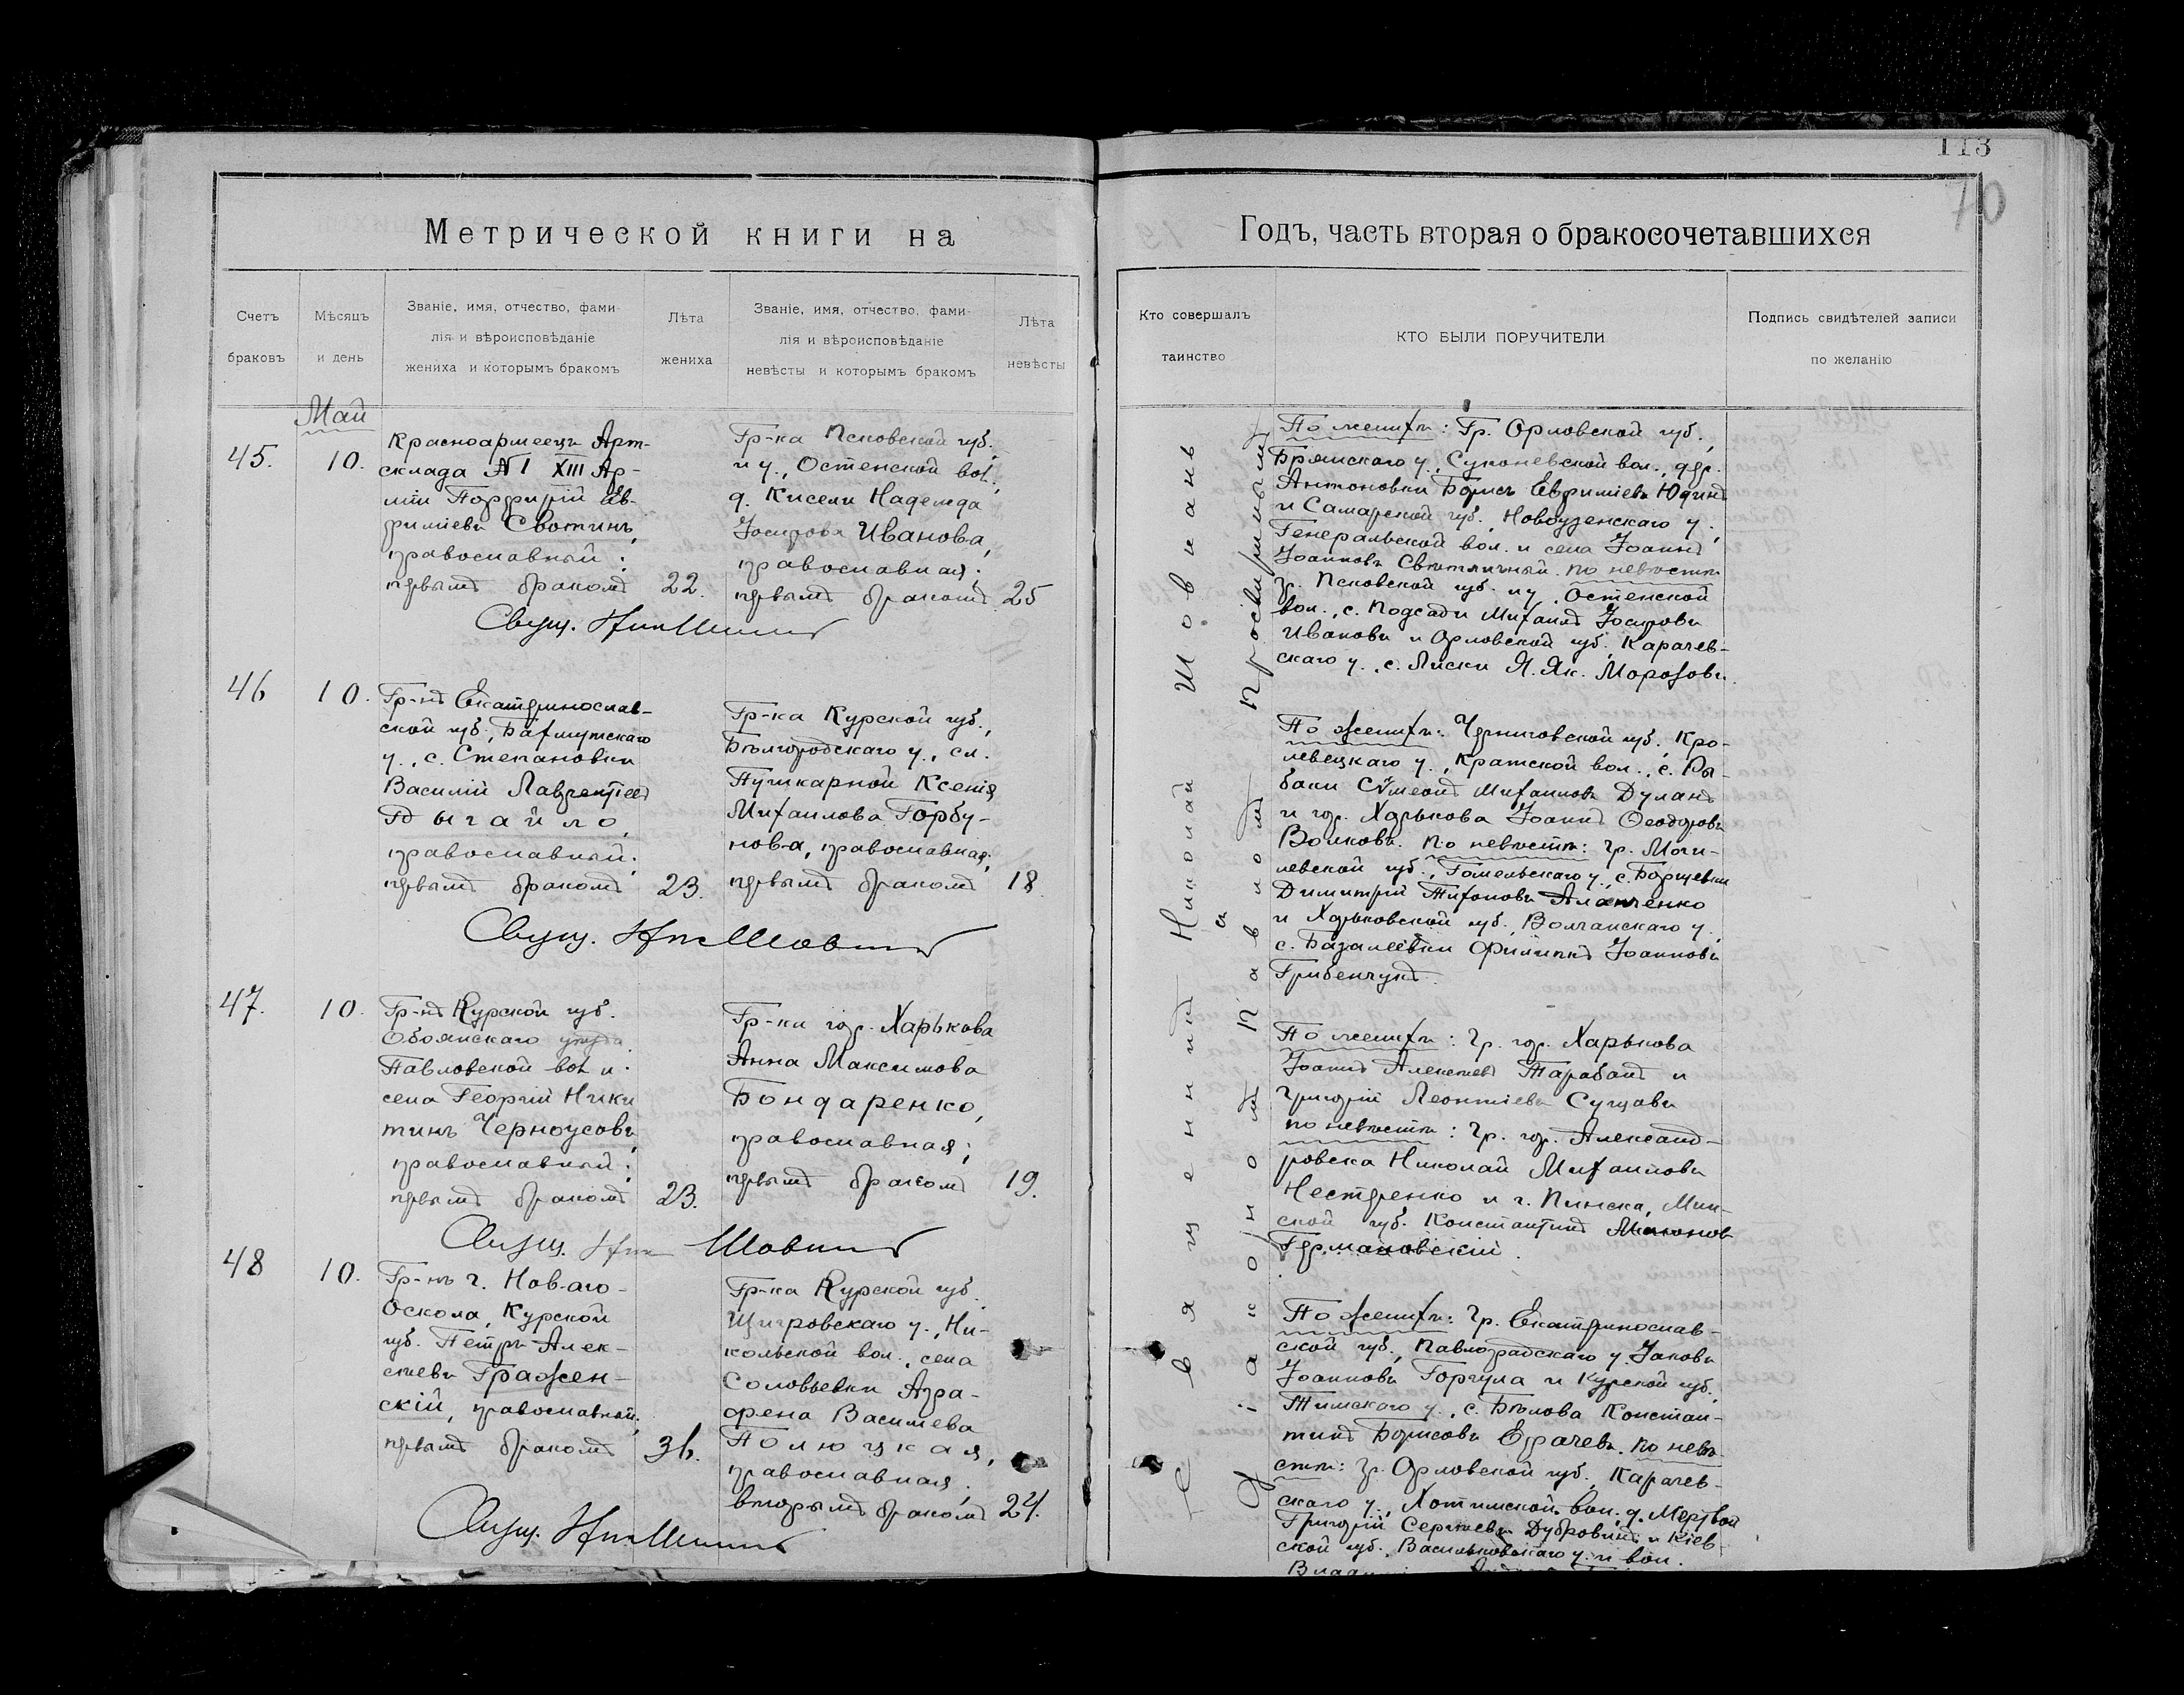 113
70
Метрической книги на
Годъ, часть вторая о бракосочетавшихся
Счетъ
браковъ
Мѣсяцъ
и день
Званіе, имя, отчество, фами-
лія и вѣроисповѣданіе
жениха и которымъ бракомъ
Лѣта
жениха
Званіе, имя, отчество, фами-
лія и вѣроисповѣданіе
невѣсты и которымъ бракомъ
Лѣта
невѣсты
Кто совершалъ
таинство
КТО БЫЛИ ПОРУЧИТЕЛИ
Подпись свидѣтелей записи
по желанію
Май
45.
10.
Красноармеецъ Арт-
склада №1 XIII Ар-
міи Порфирій Ев-
фиміевъ Свотинъ,
православный;
первымъ бракомъ
22.
Гр-ка Псковской губ.
и у., Остенской вол.,
д. Кисели Надежда
Іосифова Иванова,
православная;
первымъ бракомъ
25
Свящ. Ник Шовкань
46
10.
Гр-нъ Екатеринослав-
ской губ., Бахмутскаго
у., с. Степановки
Василій Лаврентіевъ
Цыгайло,
православный;
первымъ бракомъ
23.
Гр-ка Курской губ.,
Бѣлгородскаго у., сл.
Пушкарной Ксенія
Михаилова Горбу-
нов-а, православная;
первымъ бракомъ
18.
Свящ. Ник Шовкань
47.
10.
Гр-нъ Курской губ.
Обоянскаго уѣзда
Павловской вол и
села Георгій Ники
тинъ Черноусовъ
православный;
первымъ бракомъ
23.
Гр-ка гор. Харькова
Анна Максимова
Бондаренко,
православная;
первымъ бракомъ
19.
Свящ. Ник Шовкань
48
10.
Гр-нъ г. Нов-аго-
Оскола, Курской
губ. Петръ Алек-
сѣевъ Гражен-
скій, православный;
первымъ бракомъ
36.
Гр-ка Курской губ.
Щигровскаго у., Ни-
кольской вол., села
Соловьевки Агра-
фена Васильева
Полюцкая,
православная;
вторымъ бракомъ
24.
Свящ. Ник Шовкань
Священникъ Николай Шовкань
а
діакономъ Павломъ Просвирнымъ
По женихѣ: Гр. Орловской губ.,
Брянскаго у., Супоневской вол., дер.
Антоновки Борисъ Евфиміевъ Юдинъ
и Самарской губ., Новоузенскаго у.,
Генеральской вол. и села Іоаннъ
Іоанновъ Свѣтличный. По невѣстѣ
гр. Псковской губ. и у., Остенской
вол., с. Подсади Михаилъ Іосифовъ
Ивановъ и Орловской губ., Карачев-
скаго у., с. Лиски Я. Як. Морозовъ.
По женихѣ: Черниговской губ., Кро-
левецкаго у., Кратской вол., с. Ры-
баки Сѵмеонъ Михаиловъ Дуланъ
и гор. Харькова Іоаннъ Ѳеодоровъ
Волковъ. По невѣстѣ: гр. Моги-
левской губ., Гомельскаго у., с. Борщевки
Димитрій Тихоновъ
и Харьковской губ., Волчанскаго у.,
с. Базалеевки Филиппъ Іоанновъ
Грибенчукъ.
По женихѣ: гр. гор. Харькова
Іоаннъ Алексѣевъ Тарабанъ и
Григорій Леонтіевъ Сущовъ
по невѣстѣ: гр. гор. Александ-
ровска Николай Михаиловъ
Нестеренко и г. Пинска, Мин-
ской губ. Константинъ
Германовскій.
По женихѣ: гр. Екатеринослав-
ской губ., Павлоградскаго у. Іаковъ
Іоанновъ Горгула и Курской губ.
Тимскаго у., с. Бѣлова Констан-
тинъ Борисовъ Ерачевъ. По невѣ-
стѣ: гр. Орловской губ., Карачев-
скаго у., Хотимской вол., д. Мертвой
Григорій Сергѣевъ Дубровинъ и Кіев-
ской губ. Васильковскаго у. и вол.